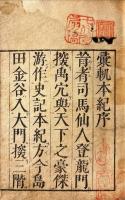 彙軌本紀序
昔者司馬仙人登龍門
探禹穴與天下之豪傑
游作史記本紀方今島
田金谷入大門探二階